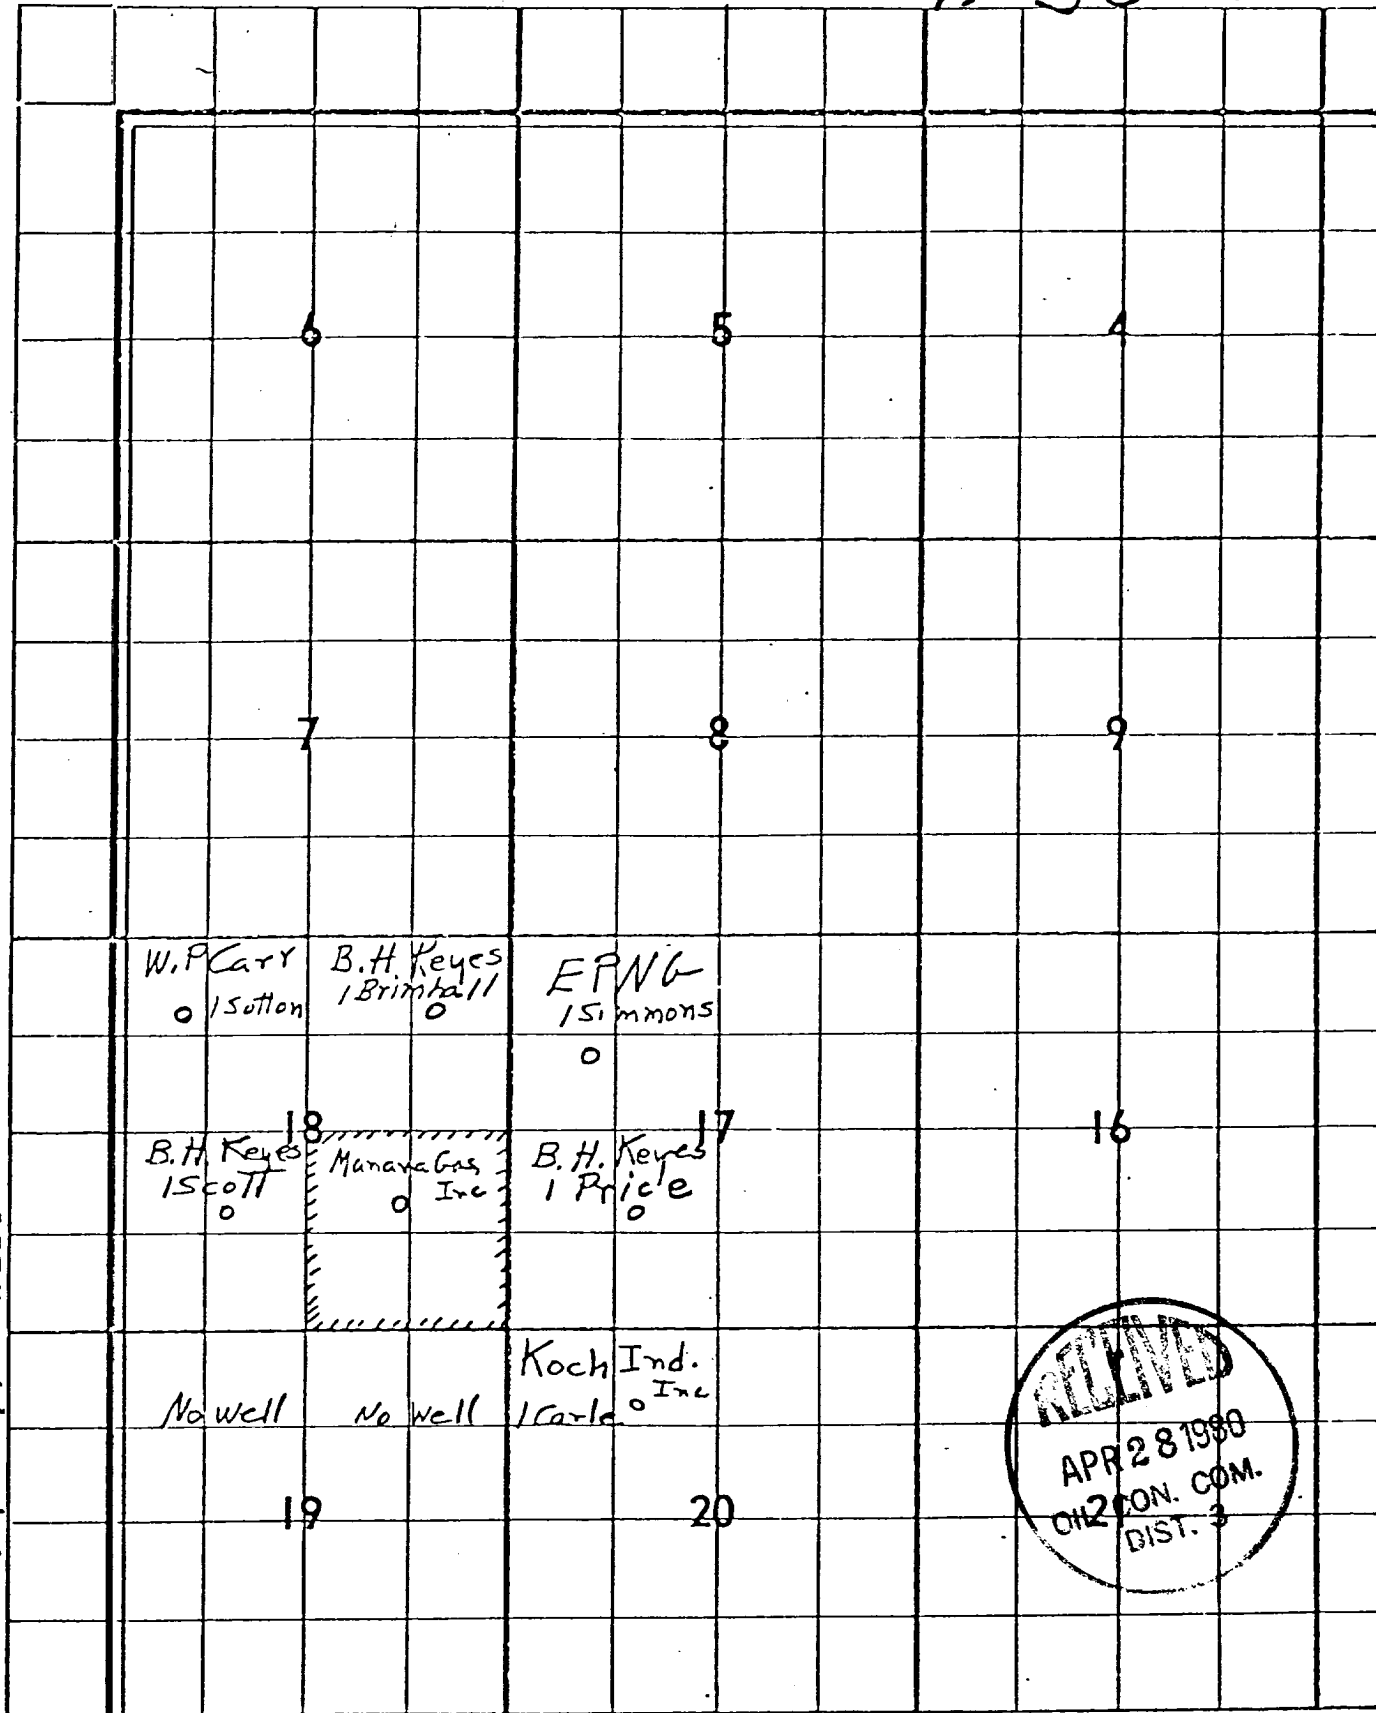 6 5 4
7 8 9
W.P Carr
1 Sutton
B.H. Keyes
1 Brimhall
EPNG
1 Simmons
18 17 16
B.H. Keyes
1 Scott
Manana Gas
Inc
B.H. Keyes
1 Price
No Well
No Well
Koch Ind.
Inc
1 Carle
RECEIVED
APR 28 1980
OIL CON. COM.
DIST. 3
19 20 21